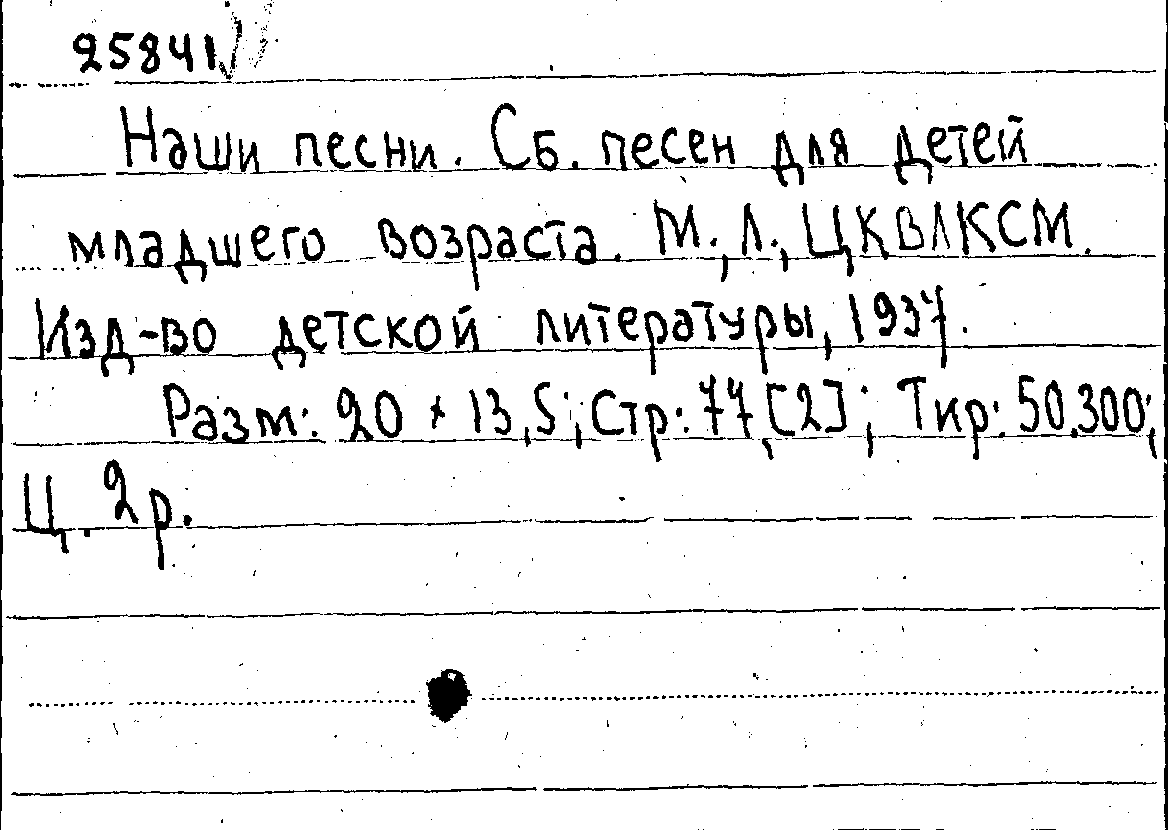 25841
Наши песни. Сб. песен для детей
младшего возраста. М., Л., ЦКВЛКСМ.
Изд-во детской литературы, 1937.
Разм: 20 × 13,5; Стр: 77,[2]; Тир: 50.300;
Ц. 2р.